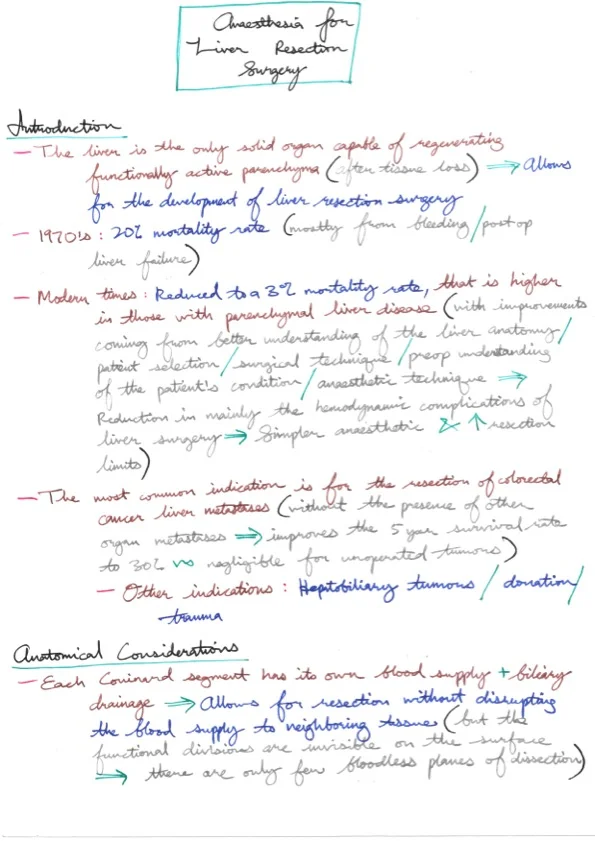 Anaesthesia for
Liver Resection
Surgery
Introduction
— The liver is the only solid organ capable of regenerating
functionally active parenchyma (after tissue loss) ⇒ Allows
for the development of liver resection surgery
— 1970's : 20% mortality rate (mostly from bleeding/post op
liver failure)
— Modern times : Reduced to a 3% mortality rate, that is higher
in those with parenchymal liver disease (with improvements
coming from better understanding of the liver anatomy/
patient selection/surgical technique/preop understanding
of the patient's condition/anaesthetic technique ⇒
Reduction in mainly the hemodynamic complications of
liver surgery ⇒ Simpler anaesthetic & ↑ resection
limits)
— The most common indication is for the resection of colorectal
cancer liver metastases (without the presence of other
organ metastases ⇒ improves the 5 year survival rate
to 30% vs negligible for unoperated tumours)
— Other indications : Heptobiliary tumours / donation/
trauma
Anatomical Considerations
— Each Couinard segment has its own blood supply + biliary
drainage ⇒ Allows for resection without disrupting
the blood supply to neighboring tissues (but the
functional divisions are invisible on the surface
⇒ there are only few bloodless planes of dissection)